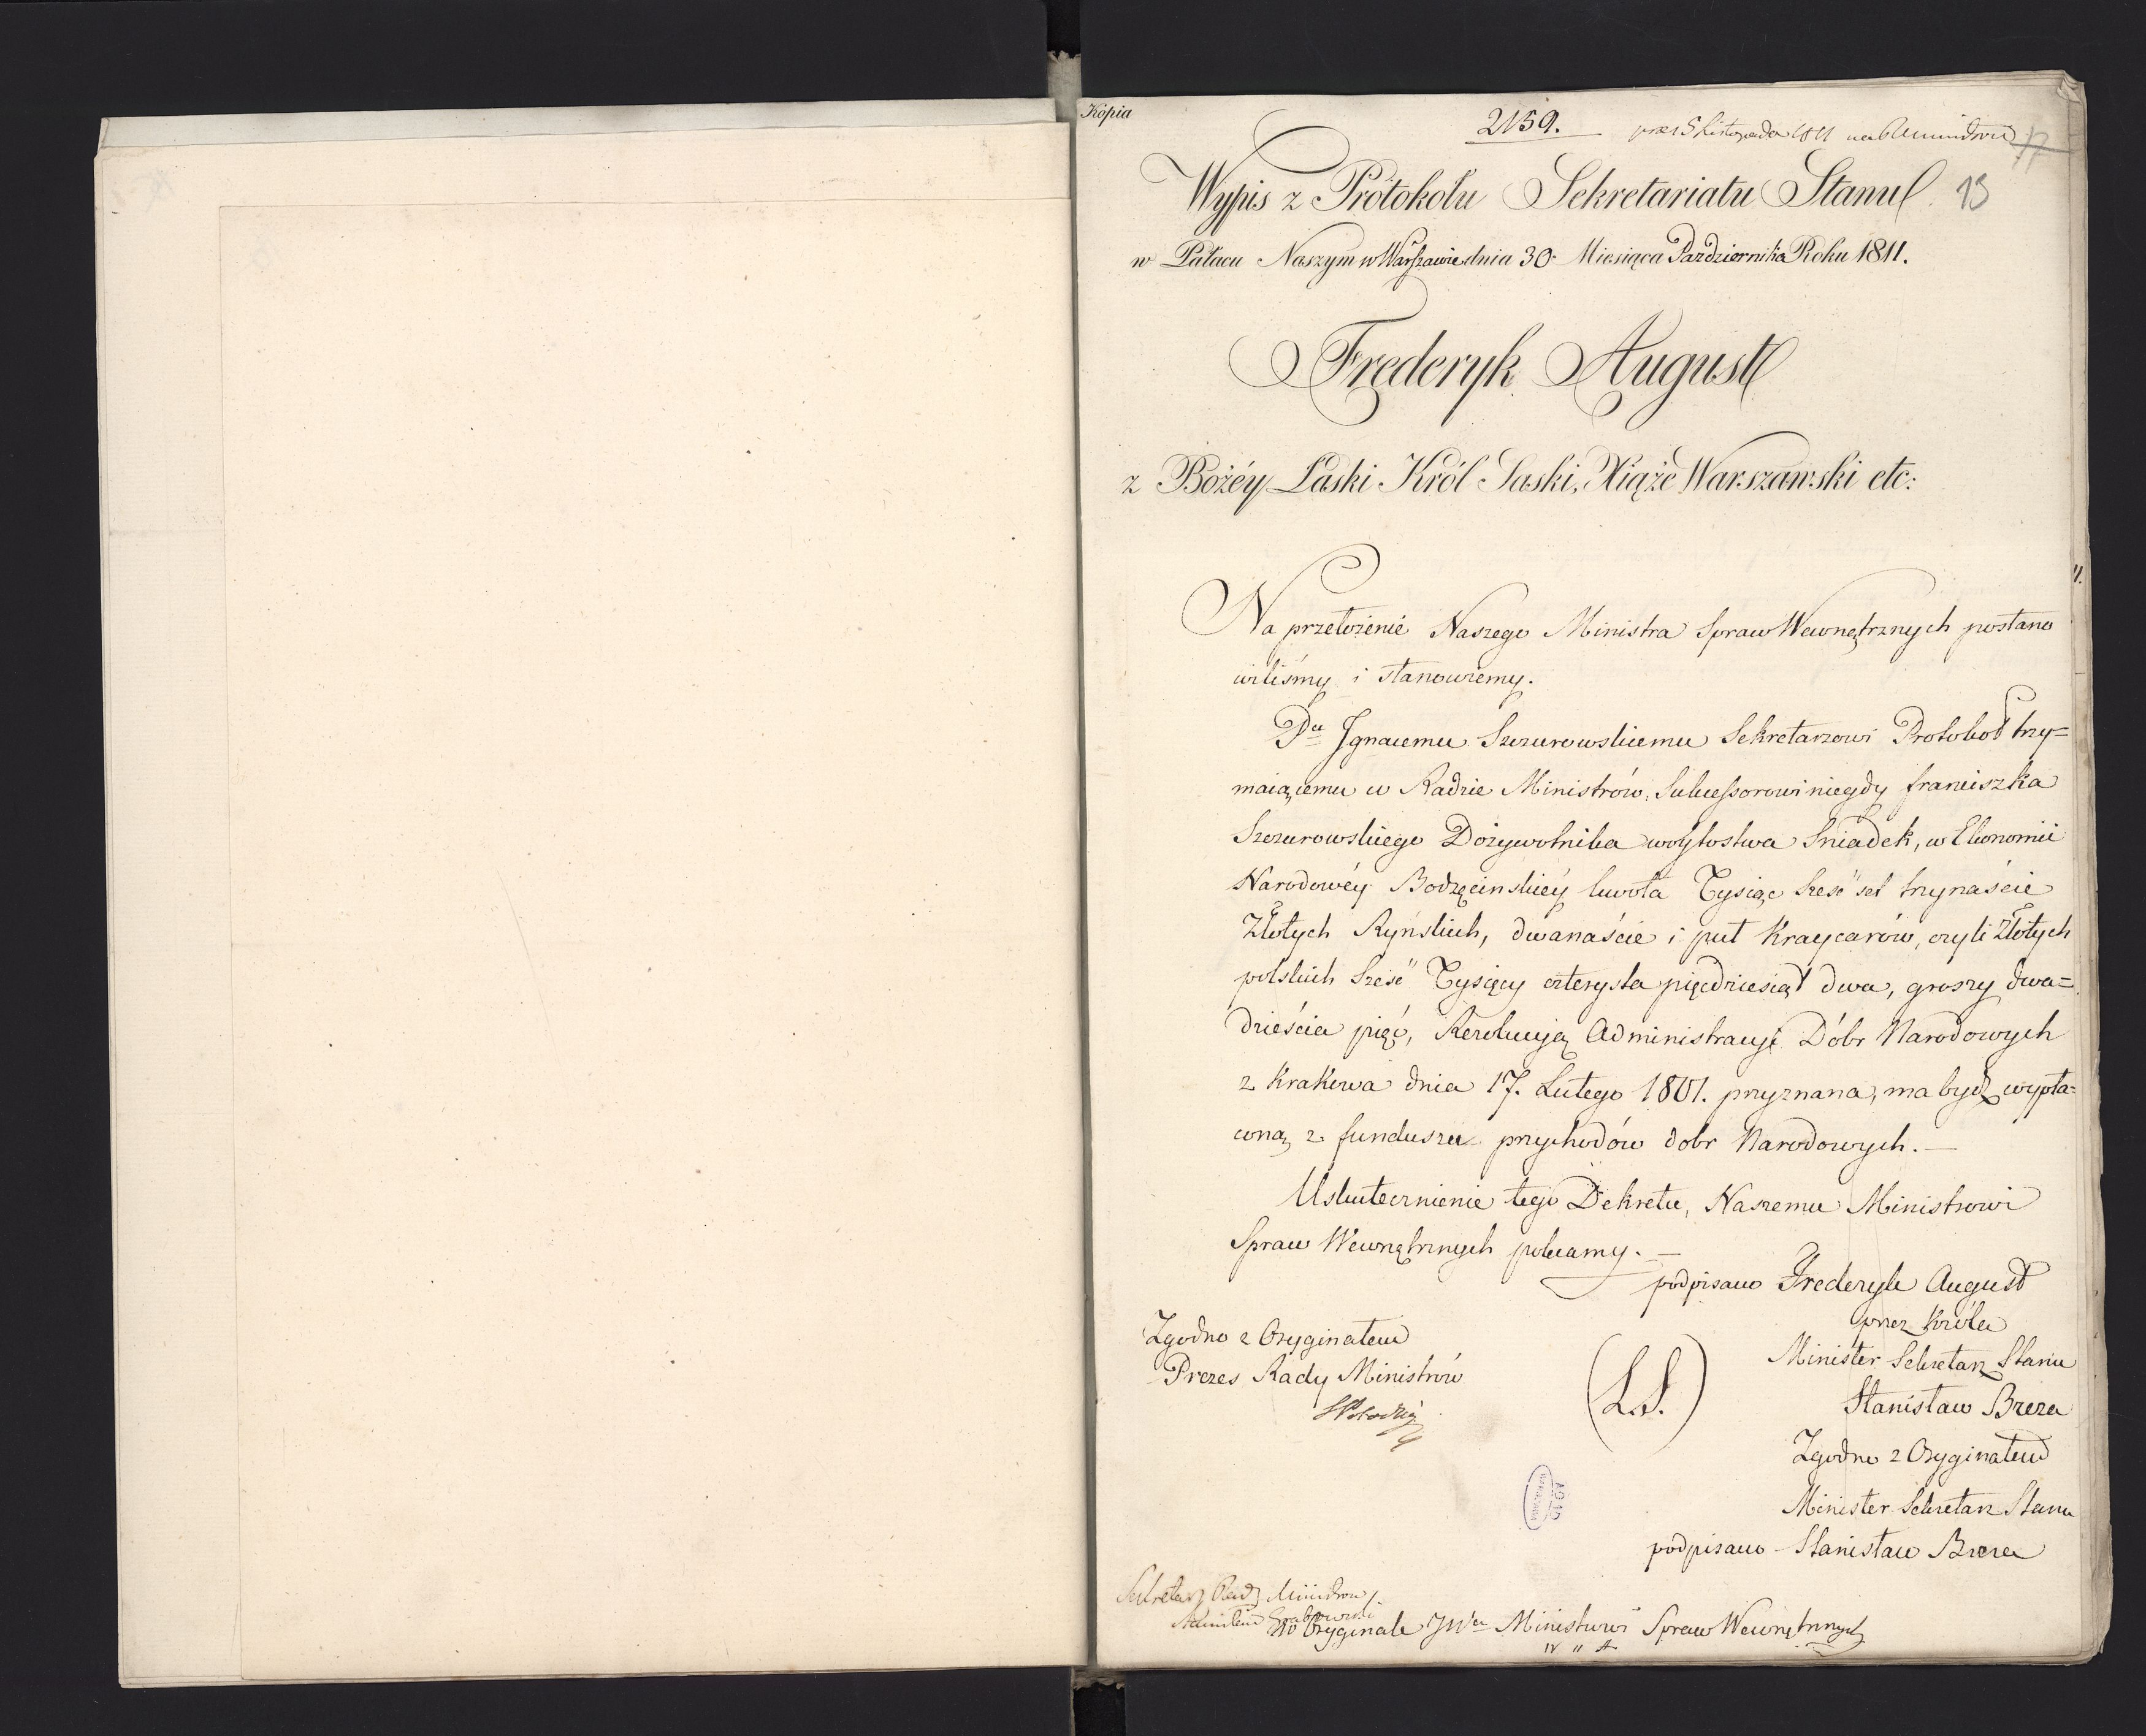 Kopia
2159. 5 Listopada 1811
13
Wypis z Protokołu Sekretariatu Stanu
w Pałacu Naszym w Warszawie dnia 30. Miesiąca Pazdziernika Roku 1811.
Frederyk August
z Bożéy Łaski Król Saski, Xiąże Warszawski etc:
Na przełożenie Naszego Ministra Spraw Wewnętrznych postano
wiliśmy i stanowiemy.
Pu Ignacemu Szczurowskiemu Sekretarzowi Protokoł trzy=
maiącemu w Radzie Ministrów, Sukcessorowi niegdy franciszka
Szczurowskiego Dożywotnika woytostwa Sniadek, w Ekonomii
Narodowéy Bodzęcinskiéy kwota Tysiąc Sześć set trzynaście
Złotych Ryńskich, dwanaście i puł Kraycarów, czyli Złotych
polskich Sześć Tysięcy czterysta pięćdziesiąt dwa, groszy dwa=
dzieścia pięć, Rezolucyą Administracyi Dóbr Narodowych
z Krakowa dnia 17. Lutego 1801. przyznana, ma bydź wypła=
coną z funduszu przychodów dobr Narodowych. —
Uskutecznienie tego Dekretu, Naszemu Ministrowi
Spraw Wewnętrznych polecamy. —
podpisano Frederyk August
przez Króla
Minister Sekretarz Stanu
Stanisław Breza
Zgodno z Oryginałem
Prezes Rady Ministrów
(L.S.)
Zgodno z Oryginałem
Minister Sekretarz Stanu
podpisano Stanisław Breza
Sekretarz Rady Ministrow
Grabowski
W Oryginale JWu Ministrowi Spraw Wewnętrznych